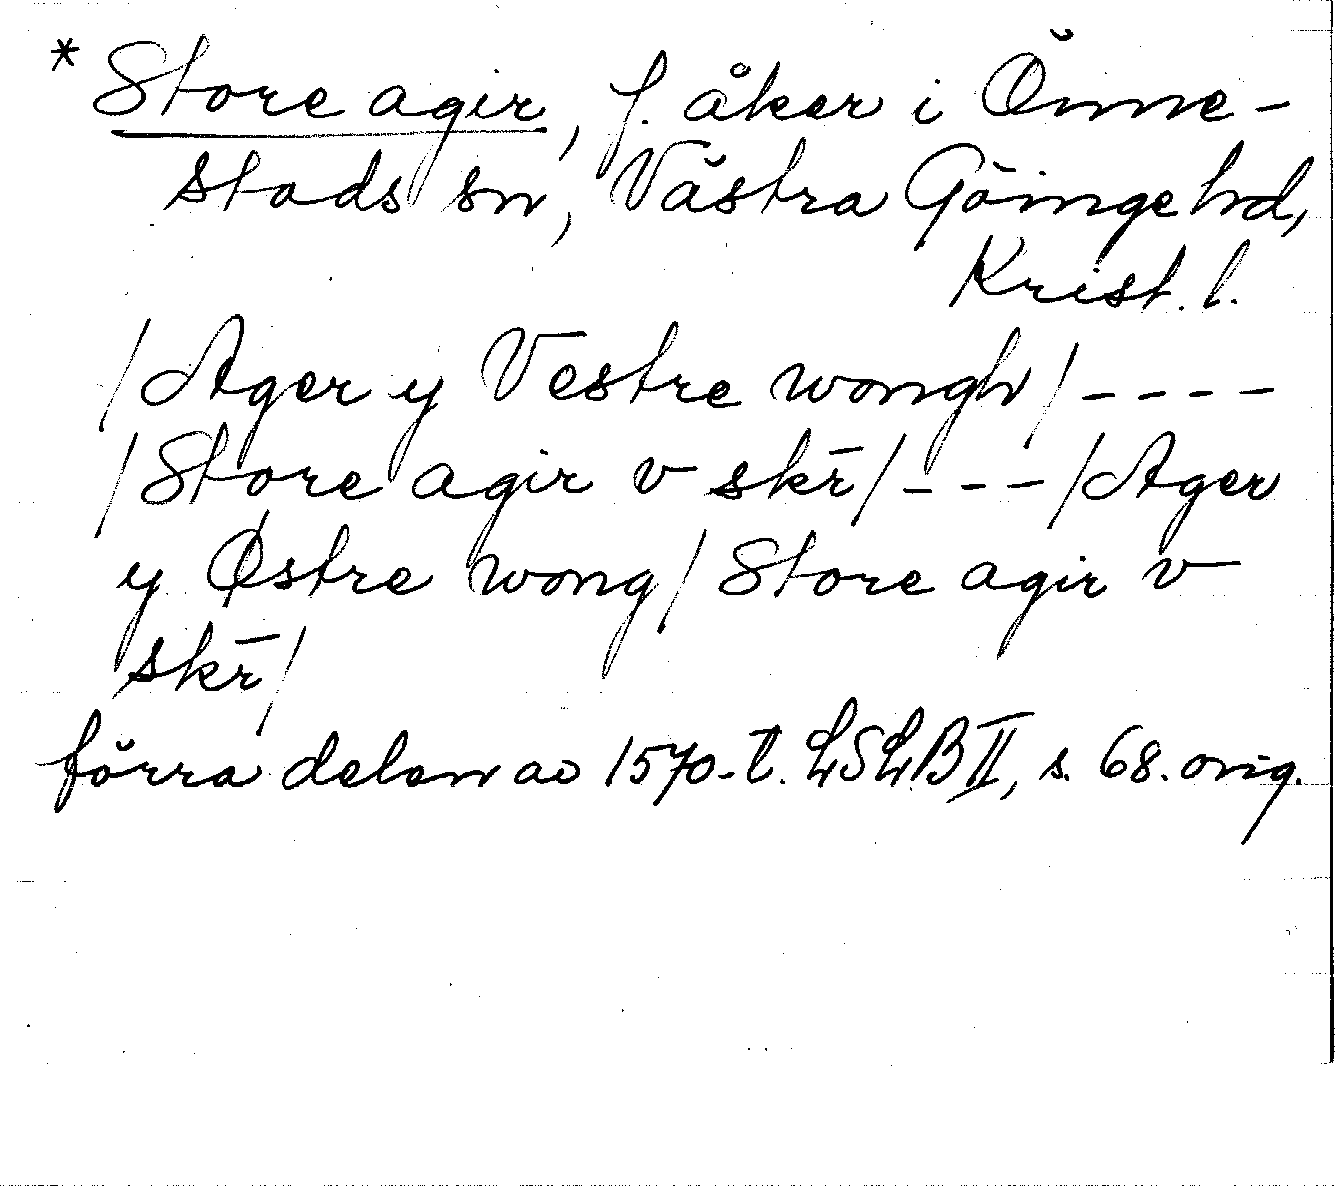 * Store agir, f. åker i Önne-
stads sn, Västra Göinge hd,
Krist. l.
/Ager y Vestre wongh/ - - - -
/Store agir v skr̄/ - - - /Ager
y Østre wong/ Store agir v
skr̄/
förra delen av 1570-t. LSLB II, s. 68. orig.